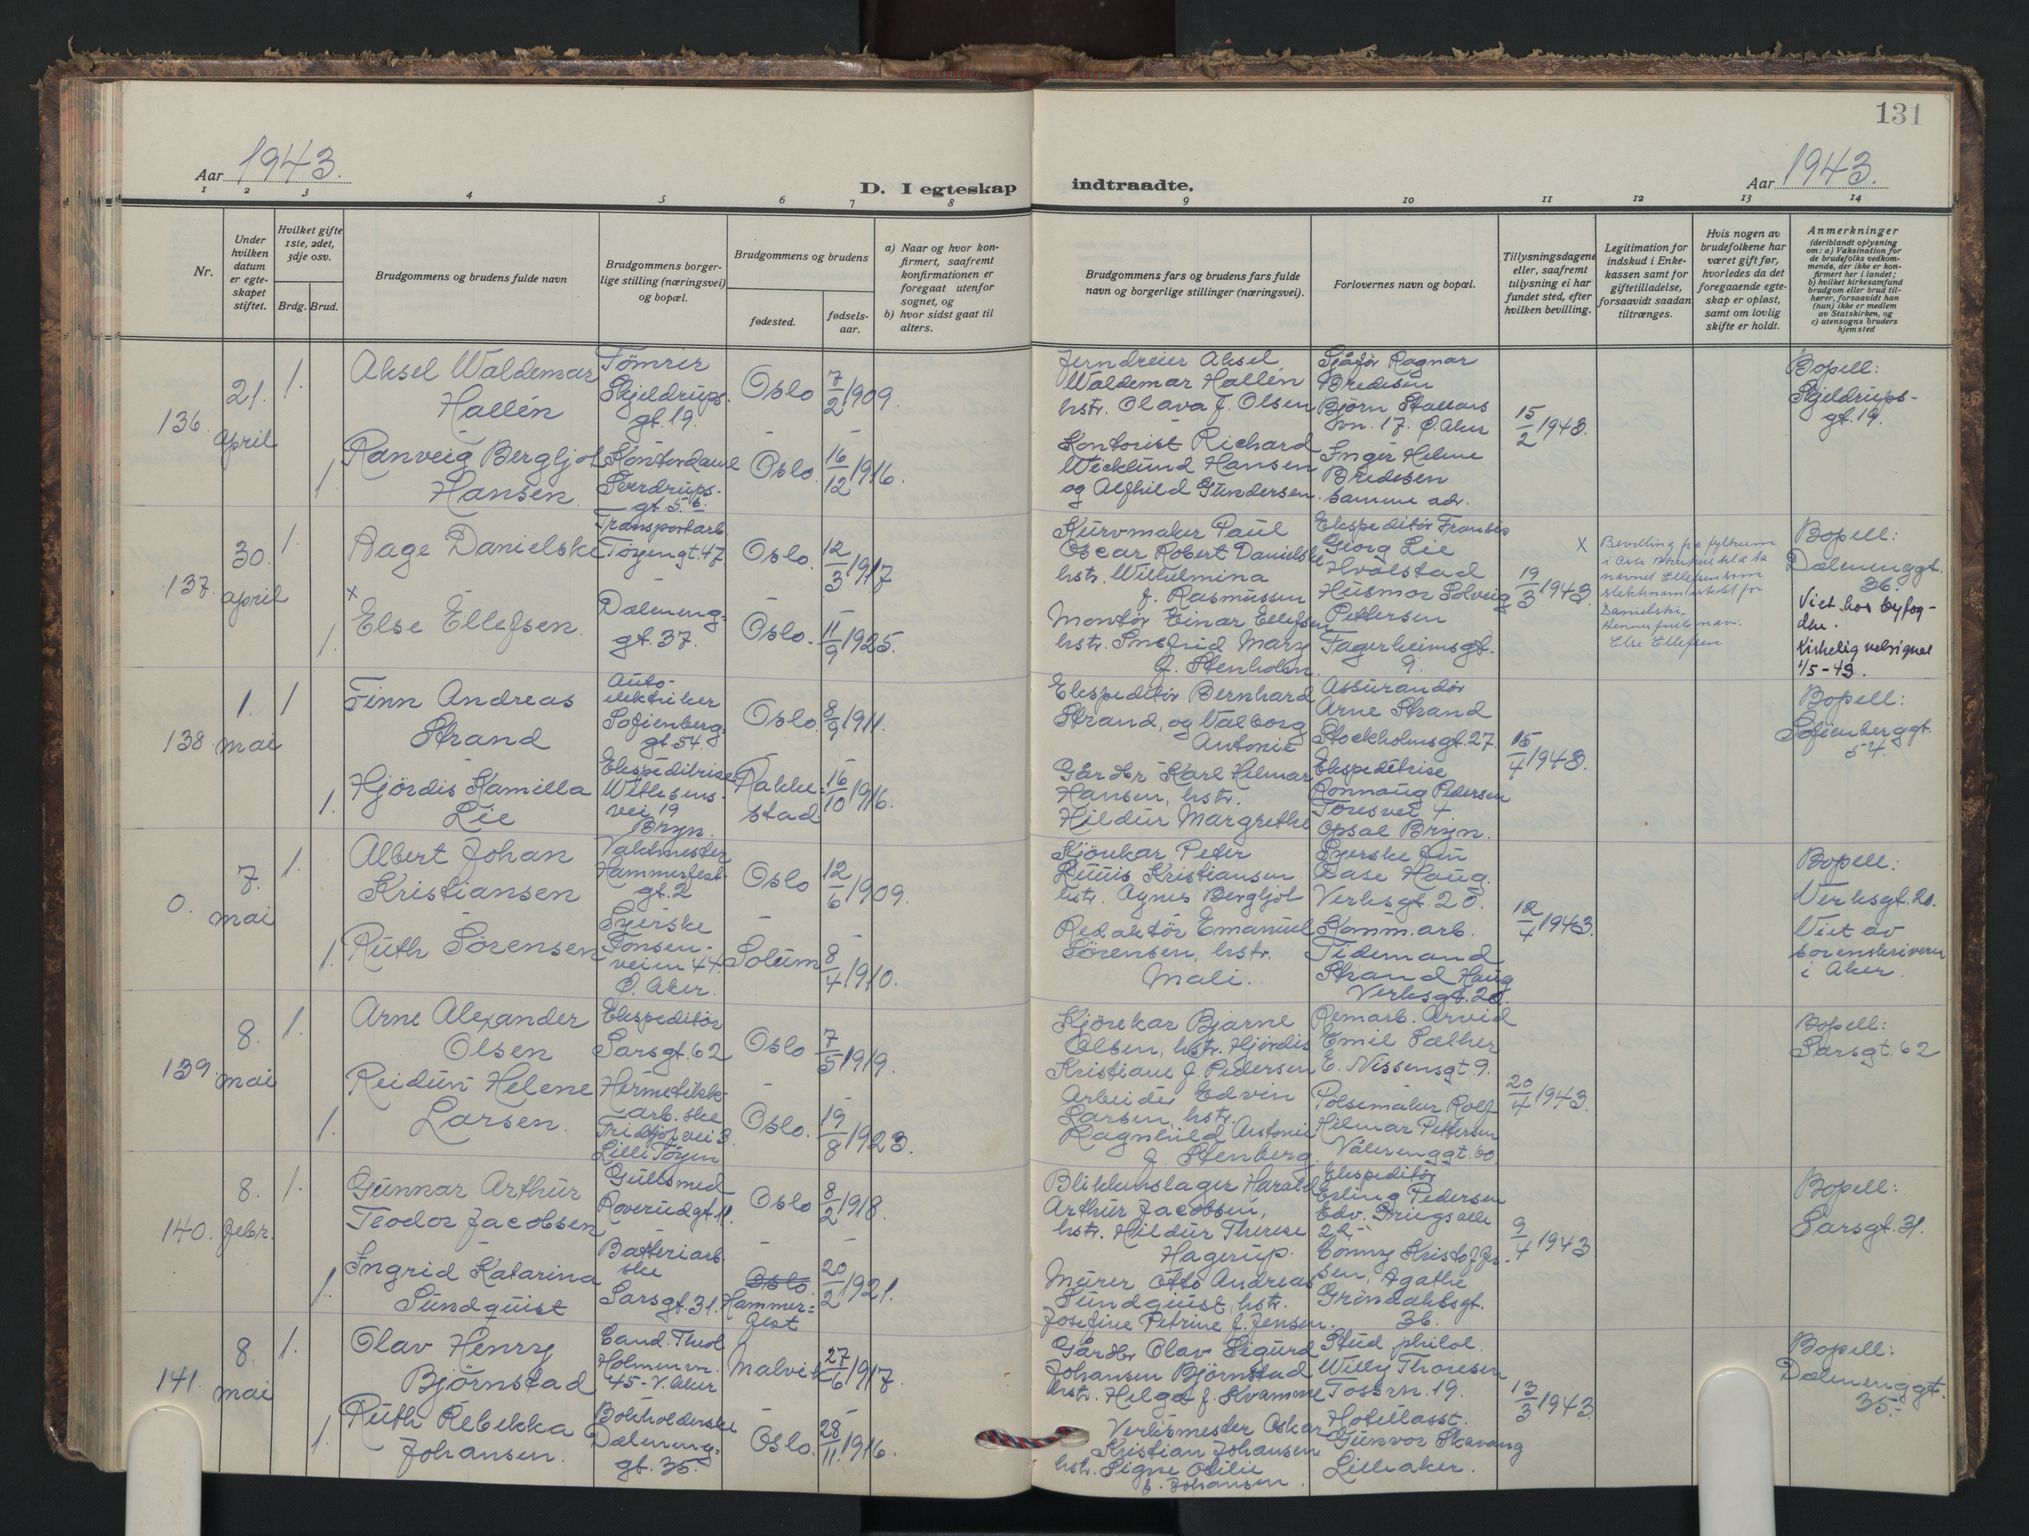 131
Aar 1943.
D. I egteskap indtraadte.
Aar 1943.
1 2 3 4 5 6 7 8 9 10 11 12 13 14
Nr.
Under hvilken datum er egteskapet stiftet.
Hvilket gifte 1ste, 2det, 3dje osv.
Brdg. Brud.
Brudgommens og brudens fulde navn
Brudgommens borgerlige stilling (næringsvei) og bopæl.
Brudgommens og brudens
fødested.
fødselsaar.
a) Naar og hvor konfirmert, saafremt konfirmationen er foregaat utenfor sognet, og
b) hvor sidst gaat til alters.
Brudgommens fars og brudens fars fulde navn og borgerlige stillinger (næringsvei).
Forlovernes navn og bopæl.
Tillysningsdagene eller, saafremt tillysning ei har fundet sted, efter hvilken bevilling.
Legitimation for indskud i Enkekassen samt for giftetilladelse, forsaavidt saadan tiltrænges.
Hvis nogen av brudefolkene har været gift før, hvorledes da det foregaaende egteskap er opløst, samt om lovlig skifte er holdt.
Anmerkninger
(deriblandt oplysning om: a) Vaksination for de brudefolks vedkommende, der ikke er konfirmert her i landet; b) hvilket kirkesamfund brudgom eller brud tilhører, forsaavidt han (hun) ikke er medlem av Statskirken, og c) utensogns bruders hjemsted
136. 21. april
1. Aksel Waldemar Hallén
Tömrer
Skjeldrups-
gt. 19.
Oslo 7/2 1909.
1. Ranveig Bergljot Hansen
Kontordame
Sverdrups-
gt. 5 b.
Oslo. 16/12 1916.
Jerndreier Aksel
Waldemar Hallén
hstr. Olava f. Olsen
Kontorist Richard
Wecklund Hansen
og Alfhild Gundersen.
Sjåfør Ragnar
Bredesen
Björn
vn. 17. Ö. Aker
Inger Helene
Bredesen
samme adr.
15/2 1943.
Bopell:
Skjeldrups-
gt. 19.
137. 30. april
1. Aage Danielski
Transportarb.
Töyengt. 47.
Oslo. 12/3 1917
x
1. Else Ellefsen.
Dæleneng-
gt. 37.
Oslo. 11/9 1925.
Kurvmaker Paul
Oscar Robert Danielski
hstr. Wilhelmina
f. Rasmussen
Montör Einar Ellefsen
hstr. Snefrid Mary
f. Stenholen.
Ekspeditör
Georg Lie
Hvalstad
Husmor Solveig
Pettersen
Fagerheimsgt.
9.
19/3 1943.
x Bevilling fra fylkene
i Oslo
navnet Ellefsen som
for
Danielski.
Hennes fulle navn:
Else Ellefsen
Bopell:
Dælenenggt.
36.
Viet hos byfog-
den.
Kirkelig velsignet
1/5-43.
138. 1. mai
1 Finn Andreas Strand
Auto-
elektriker
Sofienberg-
gt. 54.
Oslo. 8/9 1911.
1. Hjördis Kamilla Lie
Ekspeditrise
vei 19
Bryn.
Rakke-
stad 16/10 1916.
Ekspeditör Bernhard
Strand, og Valborg
Antonie
Gårdbr Karl Hilmar
Hansen, hstr.
Hildur Margrethe
Assurandör
Arne Strand
Stockholmsgt. 27.
Ekspeditrise
Rönnaug Pedersen
Töresvei 4.
Opsal Bryn.
15/4 1943.
Bopell:
Sofienberggt.
54.
0. 7. mai
1. Albert Johan Kristiansen
Vaktmester
Hammerfest-
gt. 2
Oslo 12/6 1909.
1. Ruth Sörensen
Syerske
Tonsen-
veien 44.
Ö. Aker.
Solum 8/4 1910.
Kjörekar Peter
Kristiansen
hstr. Agnes Bergljot
Redaktör Emanuel
Sörensen, hstr.
Mali.
Syerske fru
Aase Haug.
Verksgt. 20.
Komm. arb.
Tidemand
Strand Haug
Verksgt. 20.
12/4 1943.
Bopell:
Verksgt. 20.
Viet av
sorenskriveren
i Aker.
139. 8. mai
1. Arne Alexander Olsen
Ekspeditör
Sarsgt. 62
Oslo 7/5 1919.
1. Reidun Helene Larsen.
Hermetikk-
arb. ske
Fridtjofvei 3.
Lille Töyen
Oslo. 19/8 1923.
Kjörekar Bjarne
Olsen, hstr. Hjördis
Kristiane f. Pedersen
Arbeider Edvin
Larsen, hstr.
Ragnhild Antonie
f. Stenberg.
Remarb. Arvid
Emil Sæther
E. Nissensgt. 9.
Pölsemaker Rolf
Hilmar Pettersen
Vålerenggt. 60.
20/4 1943.
Bopell:
Sarsgt. 62
140. 8. febr.
1. Gunnar Arthur Teodor Jacobsen
Gullsmed
Roverudgt. 11.
Oslo 8/2 1918.
1. Ingrid Katarina Sundquist
Batteriarb.
ske
Sarsgt. 31.
Oslo.
Hammer-
fest 20/2 1921.
Blikkenslager Harald
Arthur Jacobsen,
hstr. Hildur Therese
Hagerup.
Murer Otto Andreas
Sundquist, hstr.
Josefine Petrine f. Jensen.
Ekspeditör
Erling Pedersen
Edv. Griegs alle
22.
Conny Kristoffer-
sen, Agathe
Gröndahlsgt.
36.
9/4 1943
Bopell:
Sarsgt. 31.
141. 8. mai
1. Olav Henry Björnstad
Cand. Theol
Holmenvn.
45 - V. Aker
Malvik 27/6 1917.
1. Ruth Rebekka Johansen.
Bokholderske
Dæleneng-
gt. 35.
Oslo. 28/11 1916.
Gårdbr Olav Sigurd
Johansen Björnstad
hstr. Helga f. Kvamme
Verksmester Oskar
Kristian Johansen
hstr. Signe Otilie
f. Johansen.
Stud philol.
Willy Thoresen
Tåsenvn. 19.
Hotellasst.
Gunvor Skavang
Lilleaker.
13/3 1943.
Bopell:
Dælenenggt.
35.